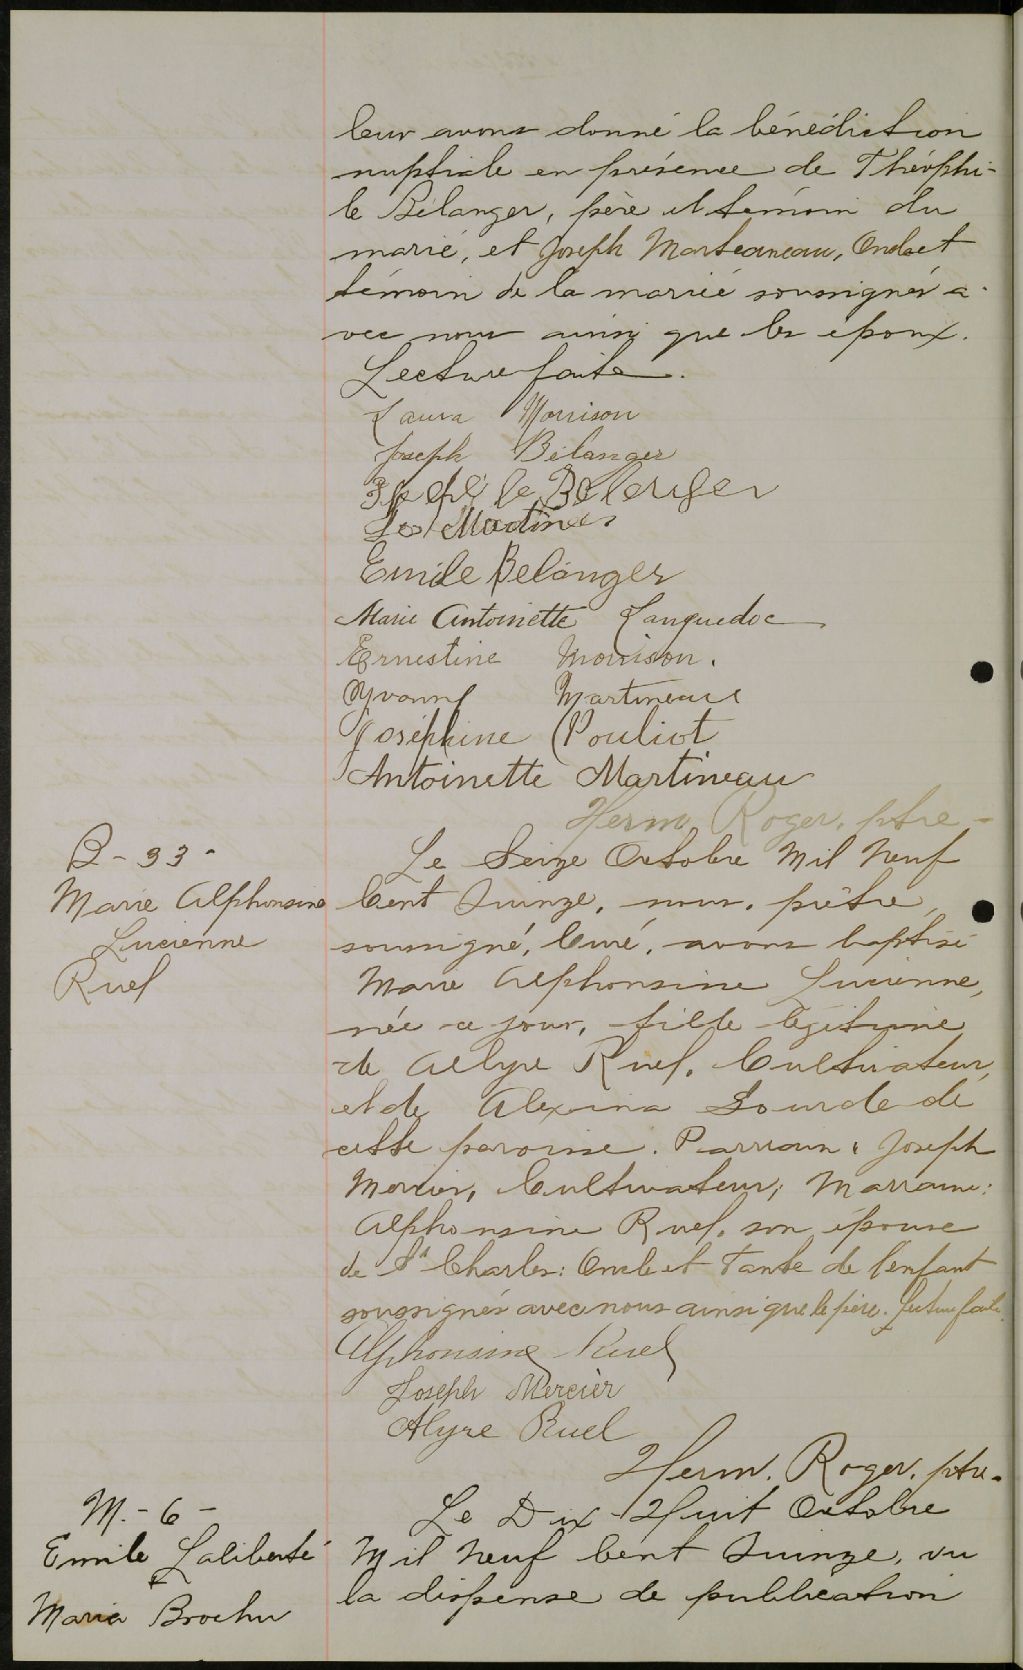 leur avons donné la bénédiction
nuptiale en présence de Théophi-
le Bélanger, père et témoin du
marié, et Joseph Marteaneau, Oncle et
témoin de la mariée soussignés a-
vec nous ainsi que les époux.
Lecture faite.
Laura Morrison
Joseph Bélanger
le Belenger
Emile Belanger
Marie Antoinette Languedoc
Ernestine Morrison.
Yvonne Martineau
Joséphine Pouliot
Antoinette Martineau
Herm. Roger, ptre-
B-33-
Marie Alphonsine
Lucienne
Ruel
Le Seize Octobre Mil Neuf
Cent Quinze, nous, prêtre,
soussigné, Curé, avons baptisé
Marie Alphonsine Lucienne,
née ce jour, fille légitime
de Allyre Ruel, Cultivateur,
et de Alexina Sourde de
cette paroisse. Parrain: Joseph
Mercier, Cultivateur; Marraine:
Alphonsine Ruel, son épouse
de St Charles: Oncle et Tante de l'enfant
soussignés avec nous ainsi que le père. Lecture faite.
Alphonsine Ruel
Joseph Mercier
Alyre Ruel
Herm. Roger, ptre-
M-6-
Emile Laliberté
&
Maria Brochu
Le Dix Huit Octobre
Mil Neuf Cent Quinze, vu
la dispense de publication